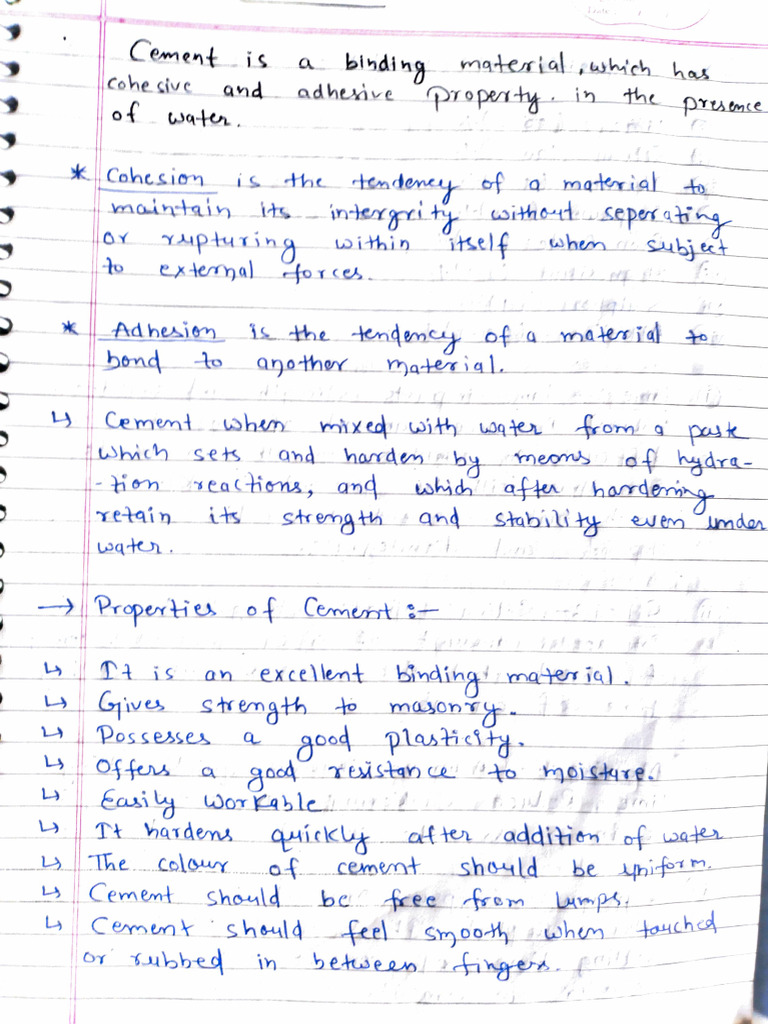 Cement is a binding material, which has
cohesive and adhesive property. in the presence
of water.
* Cohesion is the tendency of a material to
maintain its intergrity without seperating
or rupturing within itself when subject
to external forces.
* Adhesion is the tendency of a material to
bond to another material.
↳ Cement when mixed with water from a paste
which sets and harden by means of hydra-
-tion reactions, and which after hardening
retain its strength and stability even under
water.
→ Properties of Cement :-
↳ It is an excellent binding material.
↳ Gives strength to masonry.
↳ Possesses a good plasticity.
↳ Offers a good resistance to moisture.
↳ Easily workable
↳ It hardens quickly after addition of water
↳ The colour of cement should be uniform.
↳ Cement should be free from lumps.
↳ Cement should feel smooth when touched
or rubbed in between fingers.